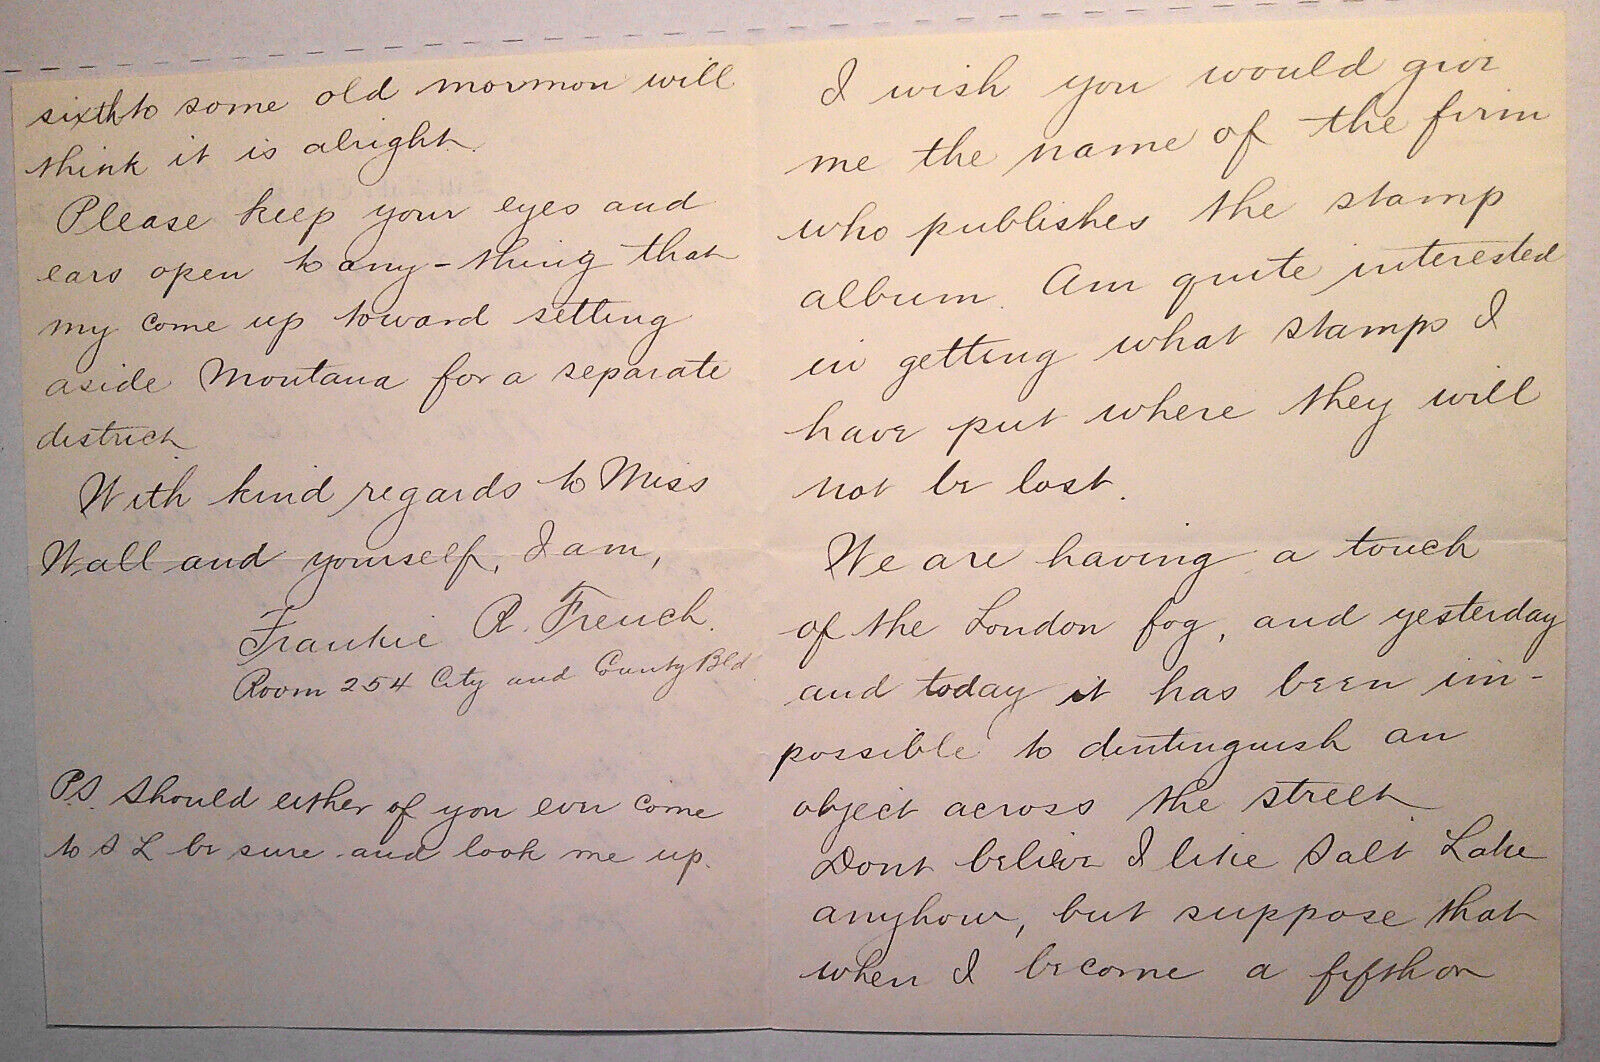 I wish you would give
me the name of the firm
who publishes the stamp
album. Am quite interested
in getting what stamps I
have put where they will
not be lost.
We are having a touch
of the London fog, and yesterday
and today it has been im-
possible to distinguish an
object across the street
Dont believe I like Salt Lake
anyhow, but suppose that
when I become a fifth or
sixth to some old mormon will
think it is alright.
Please keep your eyes and
ears open to any-thing that
my come up toward setting
aside Montana for a separate
district.
With kind regards to Miss
Wall and yourself, I am,
Frankie R. French.
Room 254 City and County Bld.
P.S. Should either of you ever come
to S L be sure and look me up.